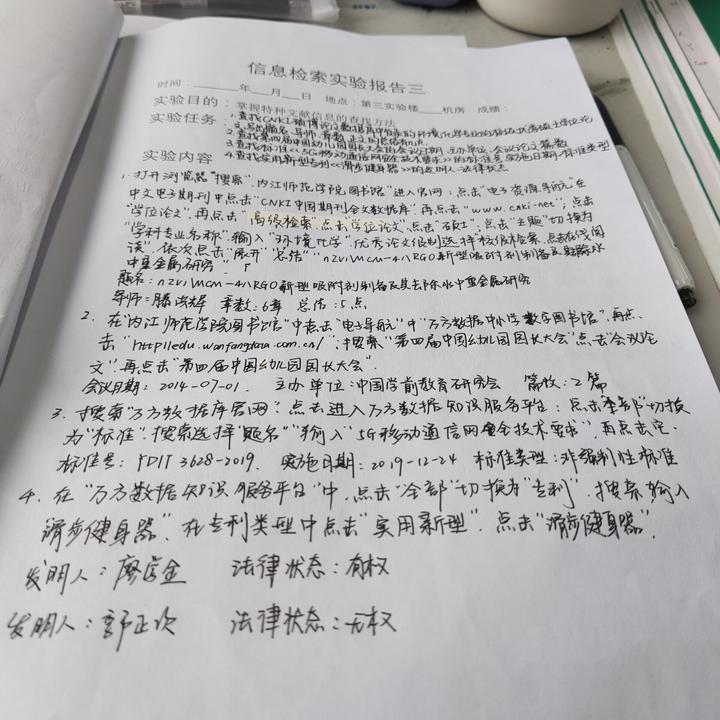 信息检索实验报告三
时间：______年___月___日 地点：第三实验楼____机房 成绩：
实验目的：掌握特种文献信息的查找方法
实验任务：1.查找CNKI硕博论文数据库中收录的环境化学专业的校级优秀硕士学位论
文，写出题名、导师、章数、正文的总结有几点。
2.查找第四届中国幼儿园园长大会的会议日期、主办单位、会议论文篇数
3.查找标准《5G移动通信网安全技术要求》的标准号、实施日期、标准类型
4.查找实用新型专利《滑步健身器》的发明人、法律状态
实验内容
1.打开浏览器"搜索"，内江师范学院图书馆"进入官网；点击"电子资源导航"在
中文电子期刊中点击"CNKI中国期刊全文数据库"，再点击"www.cnki-net"；点击
"学位论文"，再点击"高级检索"点击学位论文"，点击"硕士"，点击"主题"切换为
"学科专业名称"，输入"环境化学"，优秀论文级别选择校级检索，点击在线阅
读"，依次点击"展开""总结""nzvi/MCM-41/RGO新型吸附剂制备及去除水
中重金属研究
题名：nzvi/MCM-41/RGO新型吸附剂制备及其去除水中重金属研究
导师：滕洪辉 章数：6章 总结：5点
2. 在"内江师范学院图书馆"中点击"电子导航"中"万方数据中小学数字图书馆"，再点
击"http://edu.wanfangdata.com.cn/"，搜索"第四届中国幼儿园园长大会"点击"会议论
文"，再点击"第四届中国幼儿园园长大会"．
会议日期：2014-07-01． 主办单位：中国学前教育研究会 篇数：2篇
3. 搜索"万方数据库官网"，点击进入万方数据知识服务平台；点击全部"切换
为"标准"，搜索选择"题名""输入"5G移动通信网安全技术要求"，再点击它．
标准号：YD/T 3628-2019． 实施日期：2019-12-24 标准类型：非强制性标准
4. 在"万方数据知识服务平台"中，点击"全部"切换为"专利"，搜索输入
滑步健身器"，在专利类型中点击"实用新型"，点击"滑步健身器"．
发明人：廖富金 法律状态：有权
发明人：郭正次 法律状态：无权